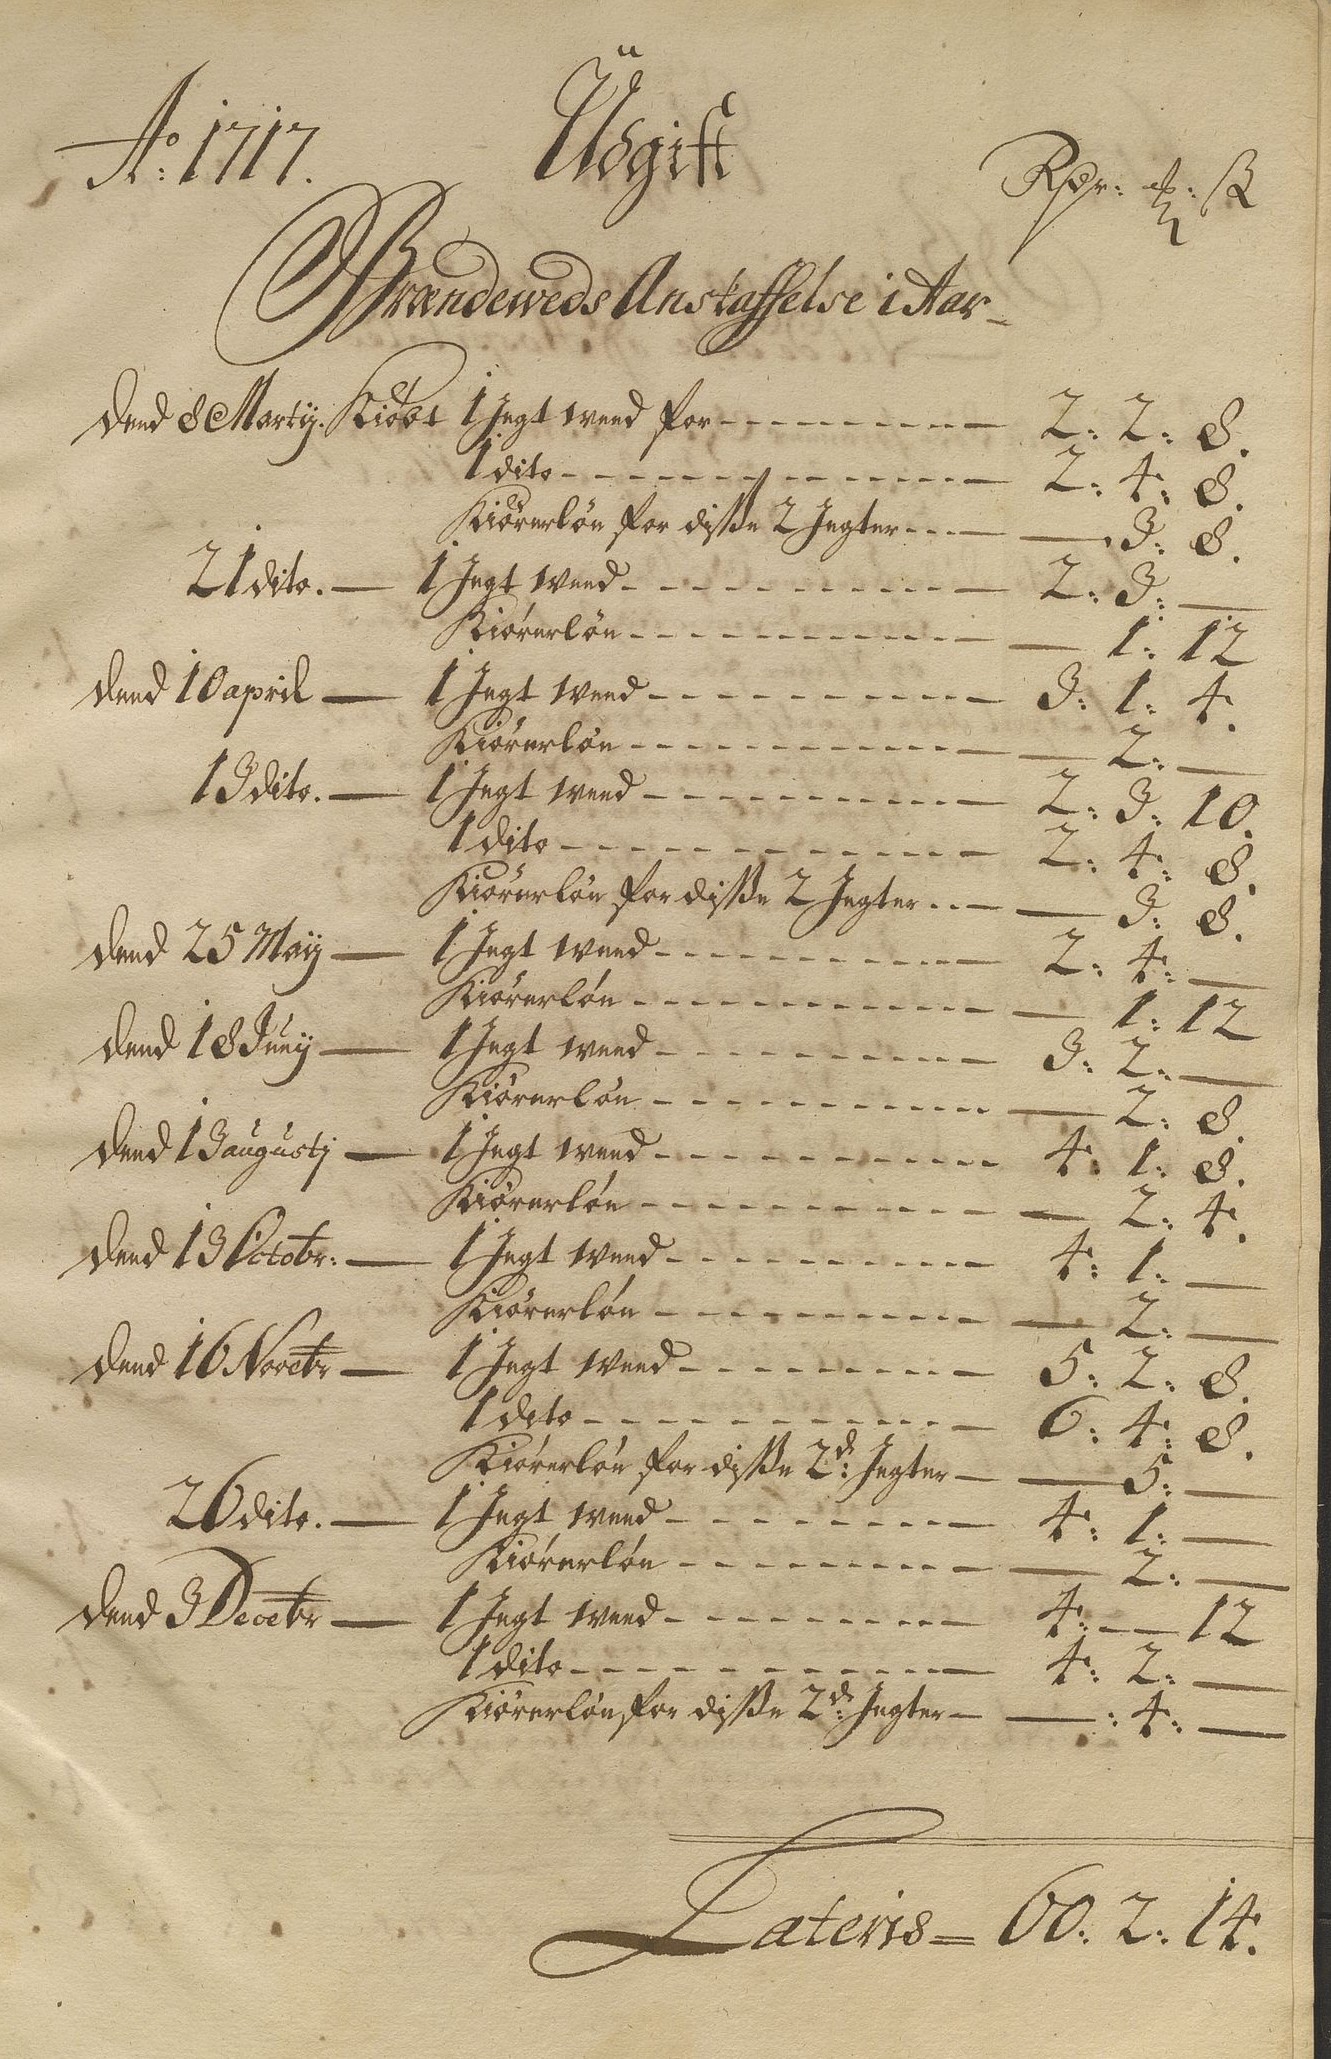 Ao: 1717. Udgift Rdr: mk: ß
Brændeweds Anskaffelse i Aar_
Dend 8 Martij. Kiöbt 1 Jegt weed for 2: 2: 8.
1 dito 2: 4: 8.
Kiörerlön for disse 2 Jegter 3: 8.
21 dito. 1 Jegt weed 2: 3:
Kiörerlön 1: 12
Dend 10 april 1 Jegt weed 3: 1: 4.
Kiörerlön 2:
13 dito. 1 Jegt weed 2: 3: 10.
1 dito 2: 4: 8.
Kiörerlön for disse 2 Jegter 3: 8.
Dend 25 Maij 1 Jegt weed 2: 4:
Kiörerlön 1: 12
Dend 18 Junij 1 Jegt weed 3: 2:
Kiörerlön 2: 8.
Dend 13 augustj 1 Jegt weed 4: 1: 8.
Kiörerlön 2: 4.
Dend 13 Octobr: 1 Jegt weed 4: 1:
Kiörerlön 2:
Dend 16 Novebr 1 Jegt weed 5: 2: 8.
1 dito 6: 4: 8.
Kiörerlön for disse 2de: Jegter 5:
26 dito. 1 Jegt weed 4: 1:
Kiörerlön 2:
Dend 3 Decebr 1 Jegt weed 4: 12
1 dito 4: 2:
Kiörerlön for disse 2de: Jegter : 4:
Lateris = 60: 2: 14.